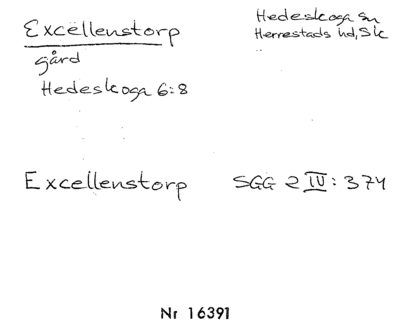 Excellenstorp
Hedeskoga sn
Herrestads hd, Sk
gård
Hedeskoga 6:8
Excellenstorp SGG 2 IV: 374
Nr 16391